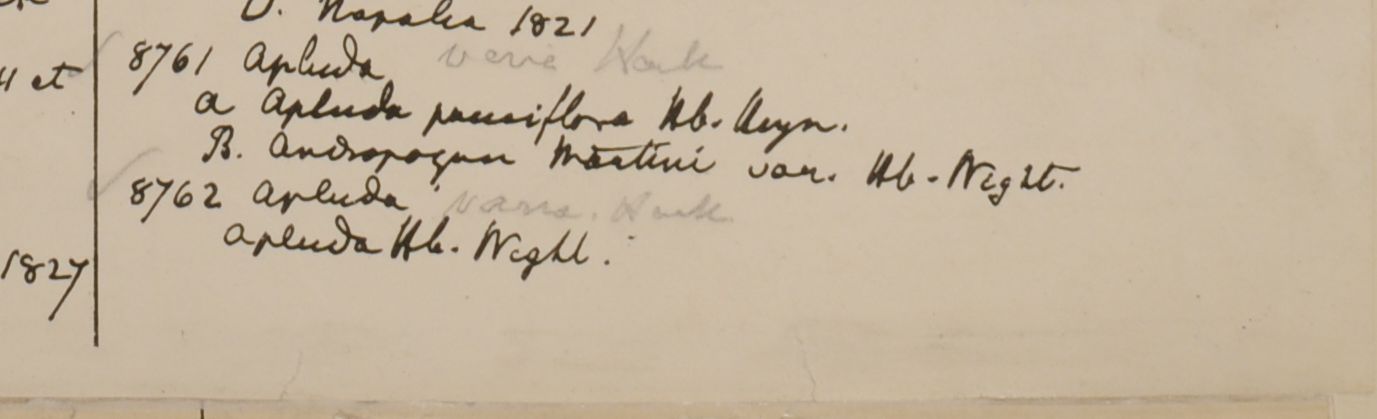 D. Napalia 1821
8761 Apluda varia Hack
a Apluda pauciflora Hb. Heyn.
B. Andropogon Martini var. Hb. Wight.
et
8762 Apluda varia. Hack
Apluda Hb. Wight.
1827